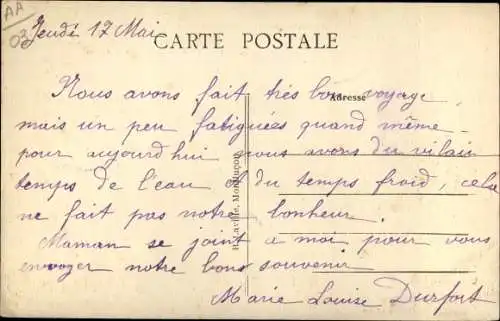 AA
03
Jeudi 17 Mai
CARTE POSTALE
Adresse
Nous avons fait très bon voyage
mais un peu fatiguées quand même
pour aujourd'hui nous avons du vilain
temps de l'eau et du temps froid, cela
ne fait pas notre bonheur.
Maman se joint a moi pour vous
envoyer notre bons souvenir
Marie Louise Durfort
Montluçon